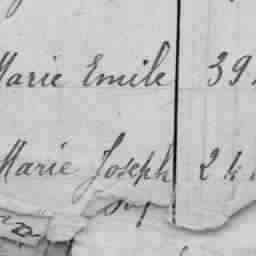 Marie Emile 39
Marie Joseph 24